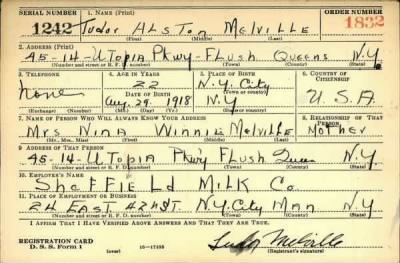 SERIAL NUMBER 1. NAME (Print) ORDER NUMBER
1242 Tudor Alston Melville 1832
(First) (Middle) (Last)
2. ADDRESS (Print)
45-14-Utopia Pkwy-Flush Queens N.Y.
(Number and street or R. F. D. number) (Town) (County) (State)
3. TELEPHONE 4. AGE IN YEARS 5. PLACE OF BIRTH 6. COUNTRY OF CITIZENSHIP
22 N.Y. City
None DATE OF BIRTH (Town or county)
Aug. 29. 1918 N.Y U.S.A.
(Exchange) (Number) (Mo.) (Day) (Yr.) (State or country)
7. NAME OF PERSON WHO WILL ALWAYS KNOW YOUR ADDRESS 8. RELATIONSHIP OF THAT PERSON
Mrs Nina Winnie Melville Mother
(Mr., Mrs., Miss) (First) (Middle) (Last)
9. ADDRESS OF THAT PERSON
45-14-Utopia Pkwy Flush N.Y
(Number and street or R. F. D. number) (Town) (County) (State)
10. EMPLOYER'S NAME
Sheffield Milk Co.
11. PLACE OF EMPLOYMENT OR BUSINESS
24 East 42nd St. N.Y. City Man N.Y
(Number and street or R. F. D. number) (Town) (County) (State)
I AFFIRM THAT I HAVE VERIFIED ABOVE ANSWERS AND THAT THEY ARE TRUE.
REGISTRATION CARD
D. S. S. Form 1 (over) 16-17105 Tudor Melville